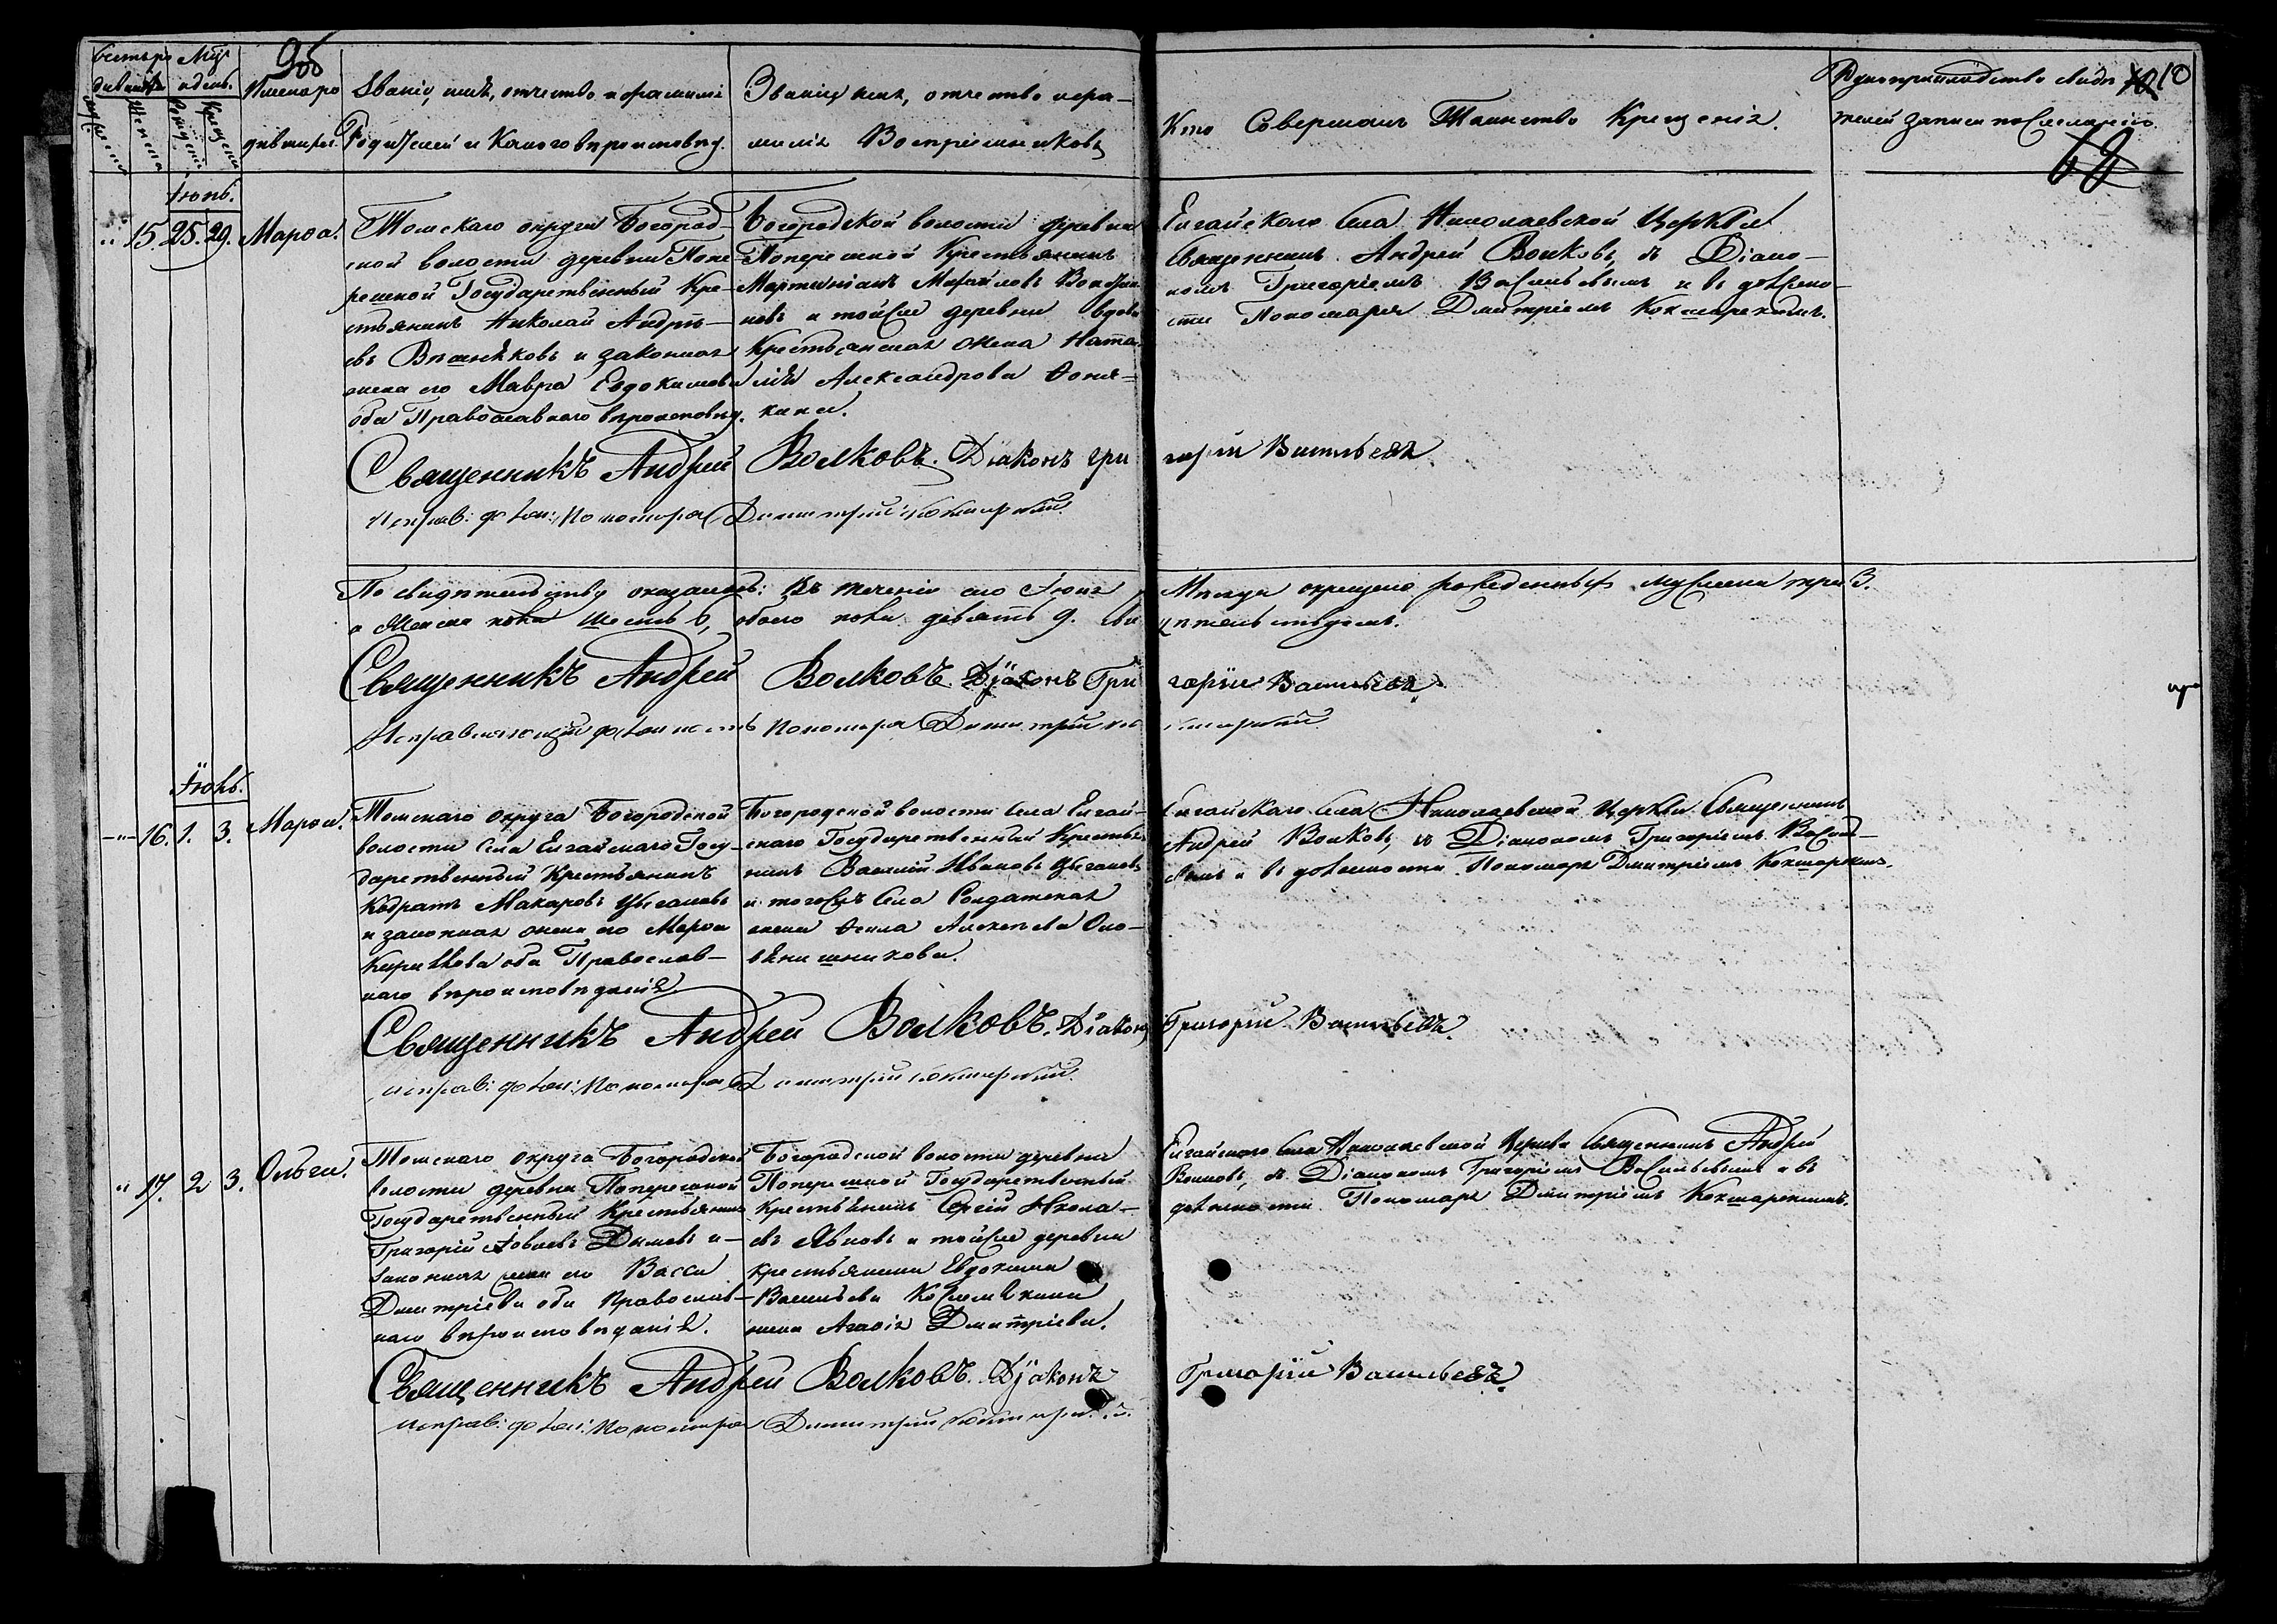 906
Мѣс.
день.
Имена ро
дившихся.
Званіе, имя, отчество и фамилія
Родителей и какого вѣроисповѣд.
Званіе, имя, отчество и фа-
милія Воспріемниковъ
Кто Совершалъ Таинство Крещенія.
Рукоприкладство свидѣ
телей записи по желанію.
10
Іюнь.
15. 25. 29. Марѳа.
Томскаго округа Богород-
ской волости деревни Попе-
решной Государственный Кре-
стьянинъ Николай Андрѣ-
евъ и законная
жена его Мавра Евдокимова
оба Православнаго вѣроисповѣд.
Богородской волости деревни
Поперешной Крестьянинъ
Мартиніанъ Михайловъ
новъ и тойже деревни вдова
Крестьянская жена Ната-
лія Александрова Ѳоня-
кина.
Елгайскаго села Николаевской Церкви
Священникъ Андрей Волковъ, съ Діако-
номъ Григоріемъ Васильевымъ и въ должно-
сти Пономаря Дмитріемъ Кокшарскимъ.
Священникъ Андрей Волковъ. Діаконъ Гри
горій Васильевъ
Исправ: долж: Пономаря Димитрій Кокшарскій.
По свидѣтельству оказалось: Въ теченіе сего Іюня
Мѣсяца окрещено рожденныхъ мужеска три 3.
а Женска пола шесть 6, обоего пола девять 9. Сви
дѣтельствуемъ.
Священникъ Андрей Волковъ. Діаконъ Гри
горій Васильевъ.
Исправляющій должность Пономаря Димитрій Ко
кшарскій
Іюль.
16. 1. 3. Марѳа.
Томскаго округа Богородской
волости Села Елгайскаго Госу-
дарственный Крестьянинъ
Кодратъ Макаровъ Цыгановъ
и законная жена его Марѳа
Кирилова оба Православ-
наго вѣроисповѣданія.
Богородской волости Села Елгай-
скаго Государственный Крестья-
нинъ Василій Ивановъ Цыгановъ
и тогожъ Села Солдатская
жена Ѳекла Алексѣева Оло-
вянишникова.
Елгайскаго Села Николаевской Церкви Священникъ
Андрей Волковъ, съ Діакономъ Григоріемъ Василь-
евымъ и въ должности Пономаря Дмитріемъ Кокшарскимъ.
Священникъ Андрей Волковъ. Діаконъ
Григорій Васильевъ.
исправ: долж: Пономаря Димитрій Кокшарскій.
17. 2 3. Ольга.
Томскаго округа Богородской
волости деревни Поперешной
Государственный Крестьянинъ
Григорій Іовлевъ и
законная жена его Васса
Дмитріева оба Православ-
наго вѣроисповѣданія.
Богородской волости деревни
Поперешной Государственный
Крестьянинъ Сергій Никола-
евъ и тойже деревни
крестьянина Евдокима
Васильева Кожемякина
жена Агаѳія Дмитріева.
Елгайскаго Села Николаевской Церкви Священникъ Андрей
Волковъ, съ Діакономъ Григоріемъ Васильевымъ и въ
должности Пономаря Дмитріемъ Кокшарскимъ.
Священникъ Андрей Волковъ. Діаконъ
Григорій Васильевъ.
исправ: долж: Пономаря Димитрій Кокшарскій.